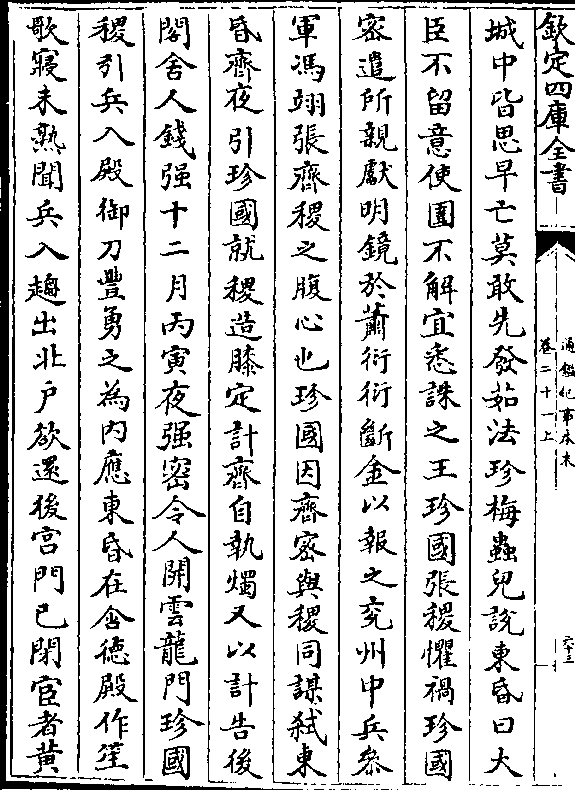 欽定四庫全書
通鑑紀事本末
卷二十一上
六十三
城中皆思早亡莫敢先發茹法珍梅蟲兒說東昏曰大
臣不留意使圍不解宜悉誅之王珍國張稷懼禍珍國
密遣所親獻明鏡於蕭衍衍斷金以報之兗州中兵參
軍馮翊張齊稷之腹心也珍國因齊密與稷同謀弑東
昏齊夜引珍國就稷造膝定計齊自執燭又以計告後
閤舍人錢强十二月丙寅夜强密令人開雲龍門珍國
稷引兵入殿御刀豐勇之為内應東昏在含德殿作笙
歌寢未熟聞兵入趨出北户欲還後宮門已閉宦者黄